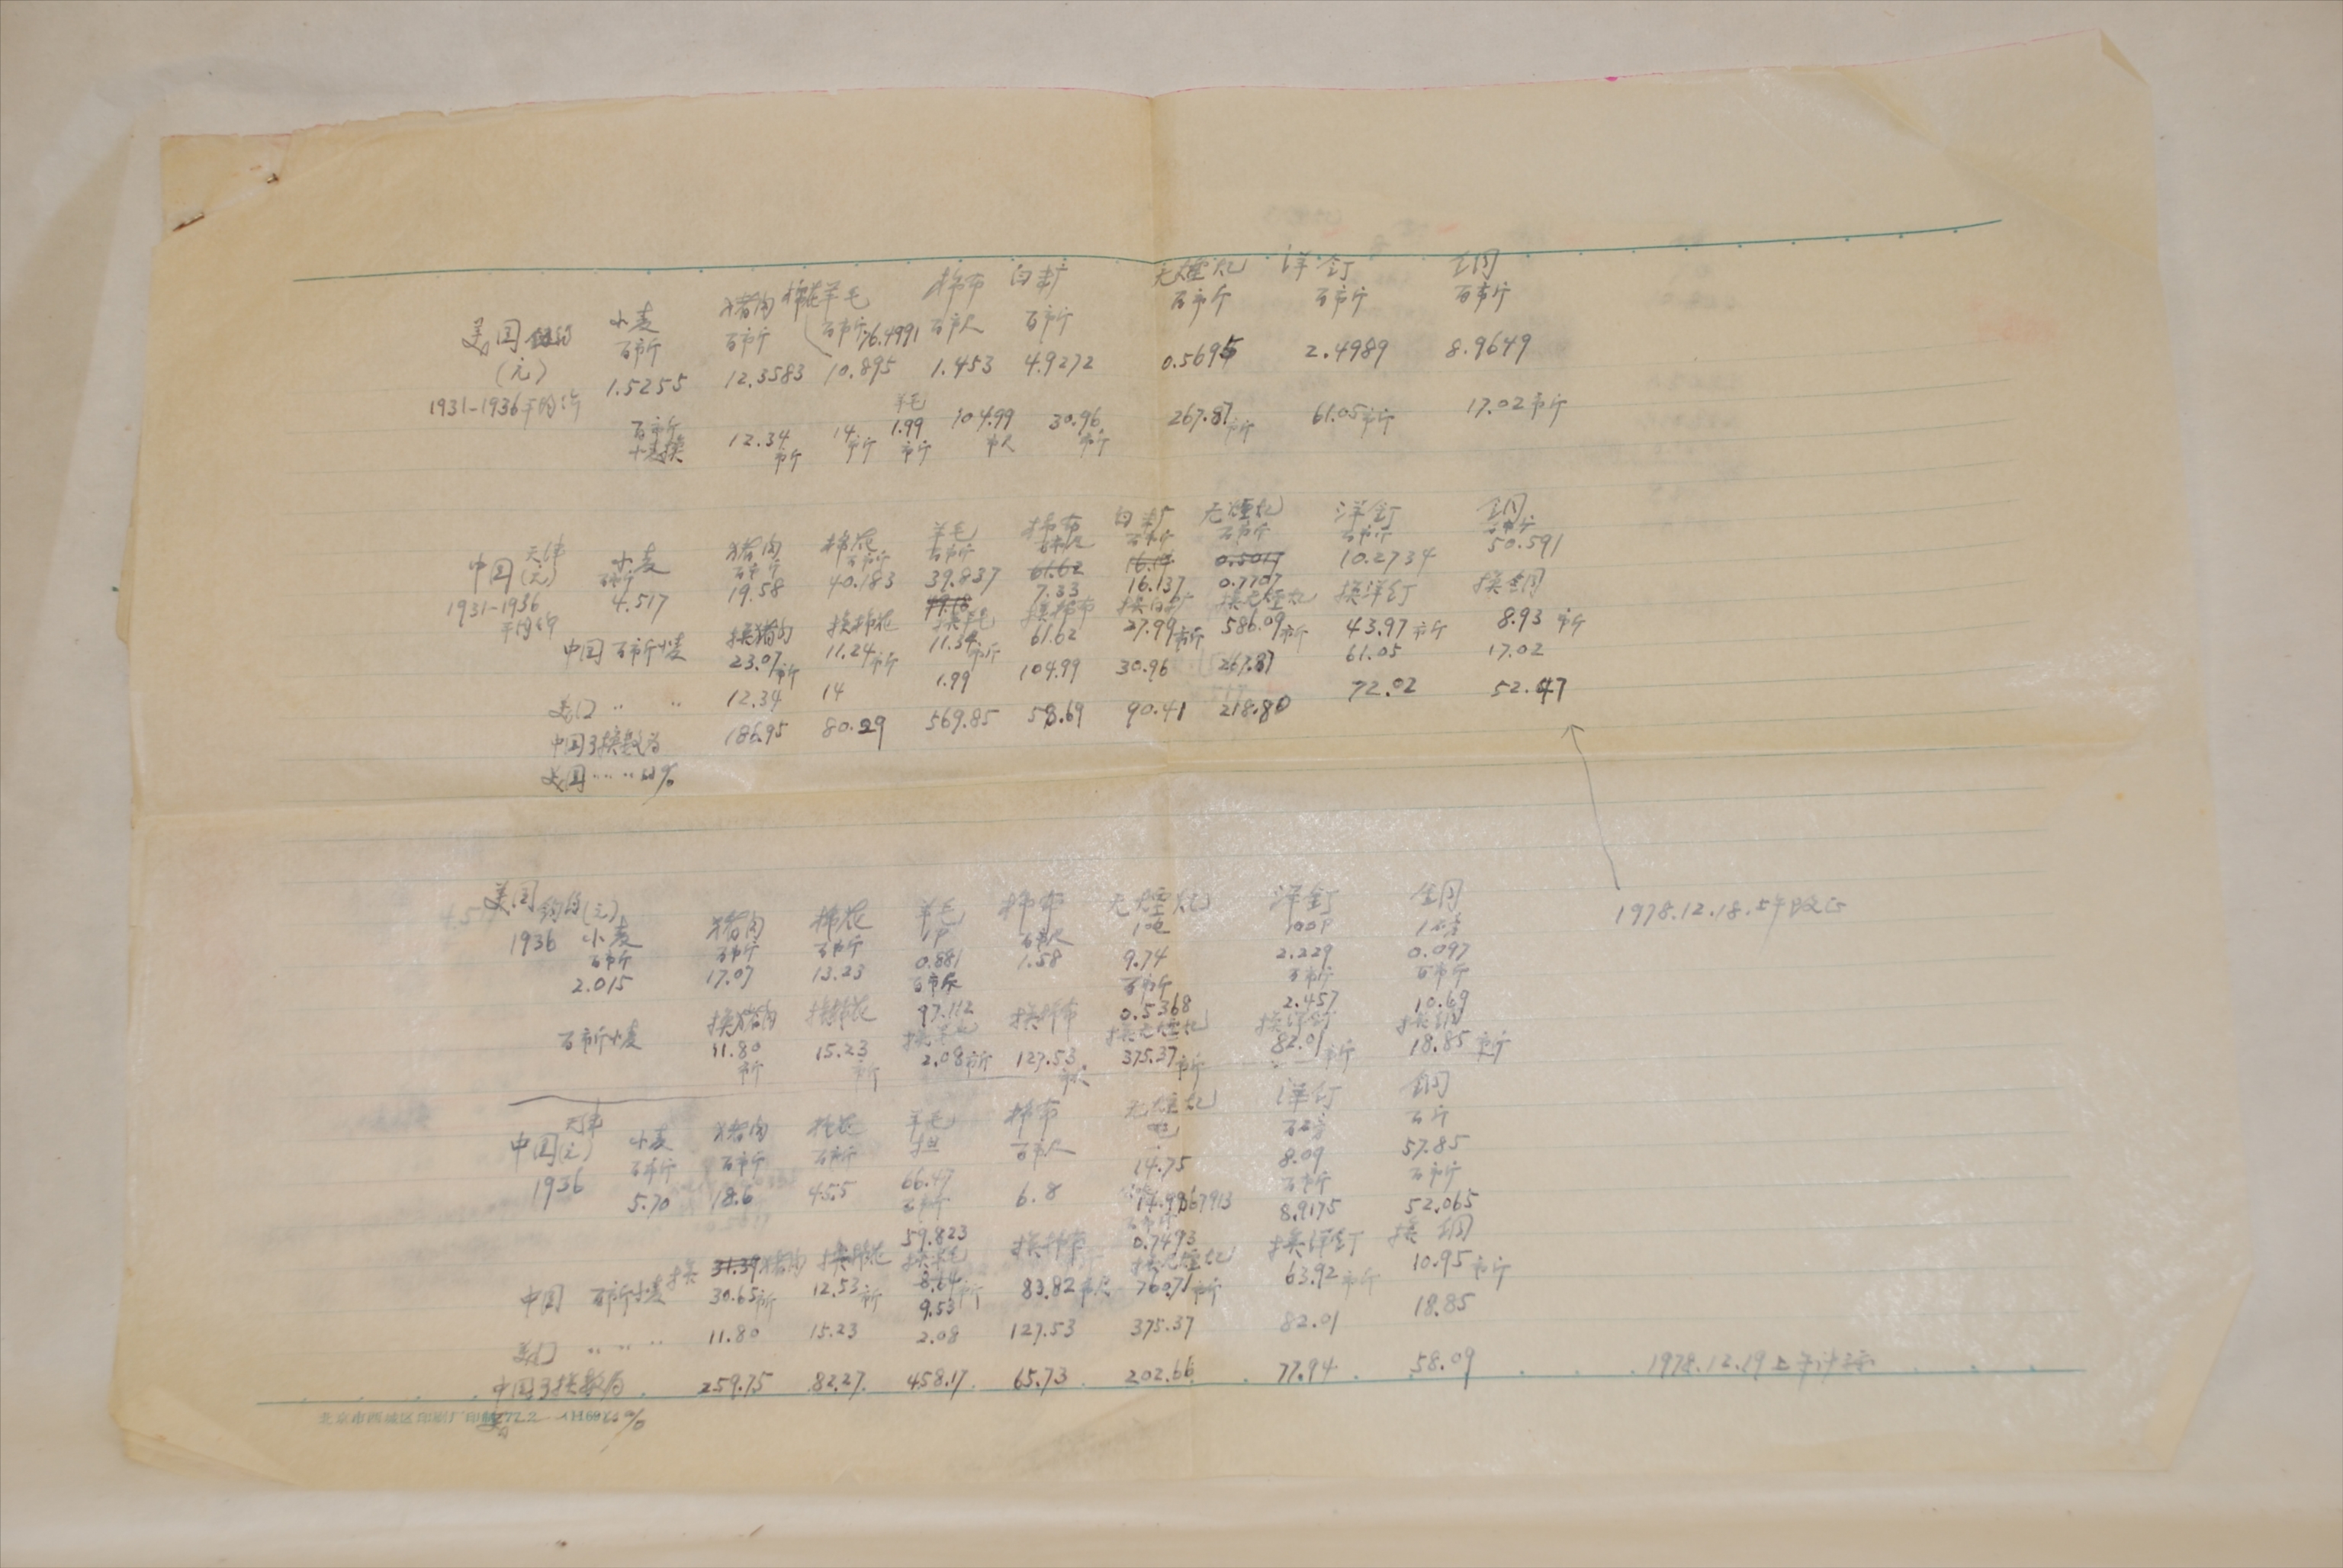 美国 纽约 小麦 猪肉 棉花 羊毛 棉布 白糖 无烟煤 洋钉 铜
(元) 百市斤 百市斤 百市斤 76.4991 百市尺 百市斤 百市斤 百市斤 百市斤
1931-1936平均 1.5255 12.3583 10.895 1.453 4.9272 0.5695 2.4989 8.9649
百市斤 羊毛
小麦换 12.34市斤 14市斤 1.99市斤 104.99市尺 30.96市斤 267.87市斤 61.05市斤 17.02市斤
中国 天津 小麦 猪肉 棉花 羊毛 棉布 白糖 无烟煤 洋钉 铜
(元) 百市斤 百市斤 百市斤 百市斤 百市尺 百市斤 百市斤 百市斤 百市斤
1931-1936 4.517 19.58 40.183 39.837 61.62 16.14 0.5017 10.2734 50.591
平均 49.18 7.33 16.137 0.7707
换猪肉 换棉花 换羊毛 换棉布 换白糖 换无烟煤 换洋钉 换铜
中国 百市斤小麦 23.07市斤 11.24市斤 11.34市斤 61.62 27.99市斤 586.09市斤 43.97市斤 8.93市斤
美国 〃 〃 12.34 14 1.99 104.99 30.96 267.87 61.05 17.02
中国交换数为 186.95 80.29 569.85 58.69 90.41 218.80 72.02 52.47
美国 〃 〃 的%
1978.12.18.下午改正
美国 纽约(元)
1936 小麦 猪肉 棉花 羊毛 棉布 无烟煤 洋钉 铜
百市斤 百市斤 百市斤 1P 百市尺 1吨 100P 1磅
2.015 17.07 13.23 0.881 1.58 9.74 2.229 0.097
百市斤 百市斤 百市斤 百市斤
97.112 0.5368 2.457 10.69
百市斤小麦 换猪肉 换棉花 换羊毛 换棉布 换无烟煤 换洋钉 换铜
11.80市斤 15.23市斤 2.08市斤 127.53市尺 375.37市斤 82.01市斤 18.85市斤
中国 天津(元) 小麦 猪肉 棉花 羊毛 棉布 无烟煤 洋钉 铜
1936 百市斤 百市斤 百市斤 担 百市尺 吨 百斤
5.70 18.6 45.5 66.47 6.8 14.75 8.09 57.85
百市斤 百市斤 百市斤
59.823 0.7493 8.9175 52.065
换 31.39 猪肉 换棉花 换羊毛 换棉布 换无烟煤 换洋钉 换铜
中国 百市斤小麦 30.65市斤 12.53市斤 8.64市斤 83.82市尺 760.71市斤 63.92市斤 10.95市斤
9.53
美国 〃 〃 〃 11.80 15.23 2.08 127.53 375.37 82.01 18.85
中国交换数为 259.75 82.27 458.17 65.73 202.66 77.94 58.09 1978.12.19上午计算
美国 〃 %
北京市西城区印刷厂印制 77.2